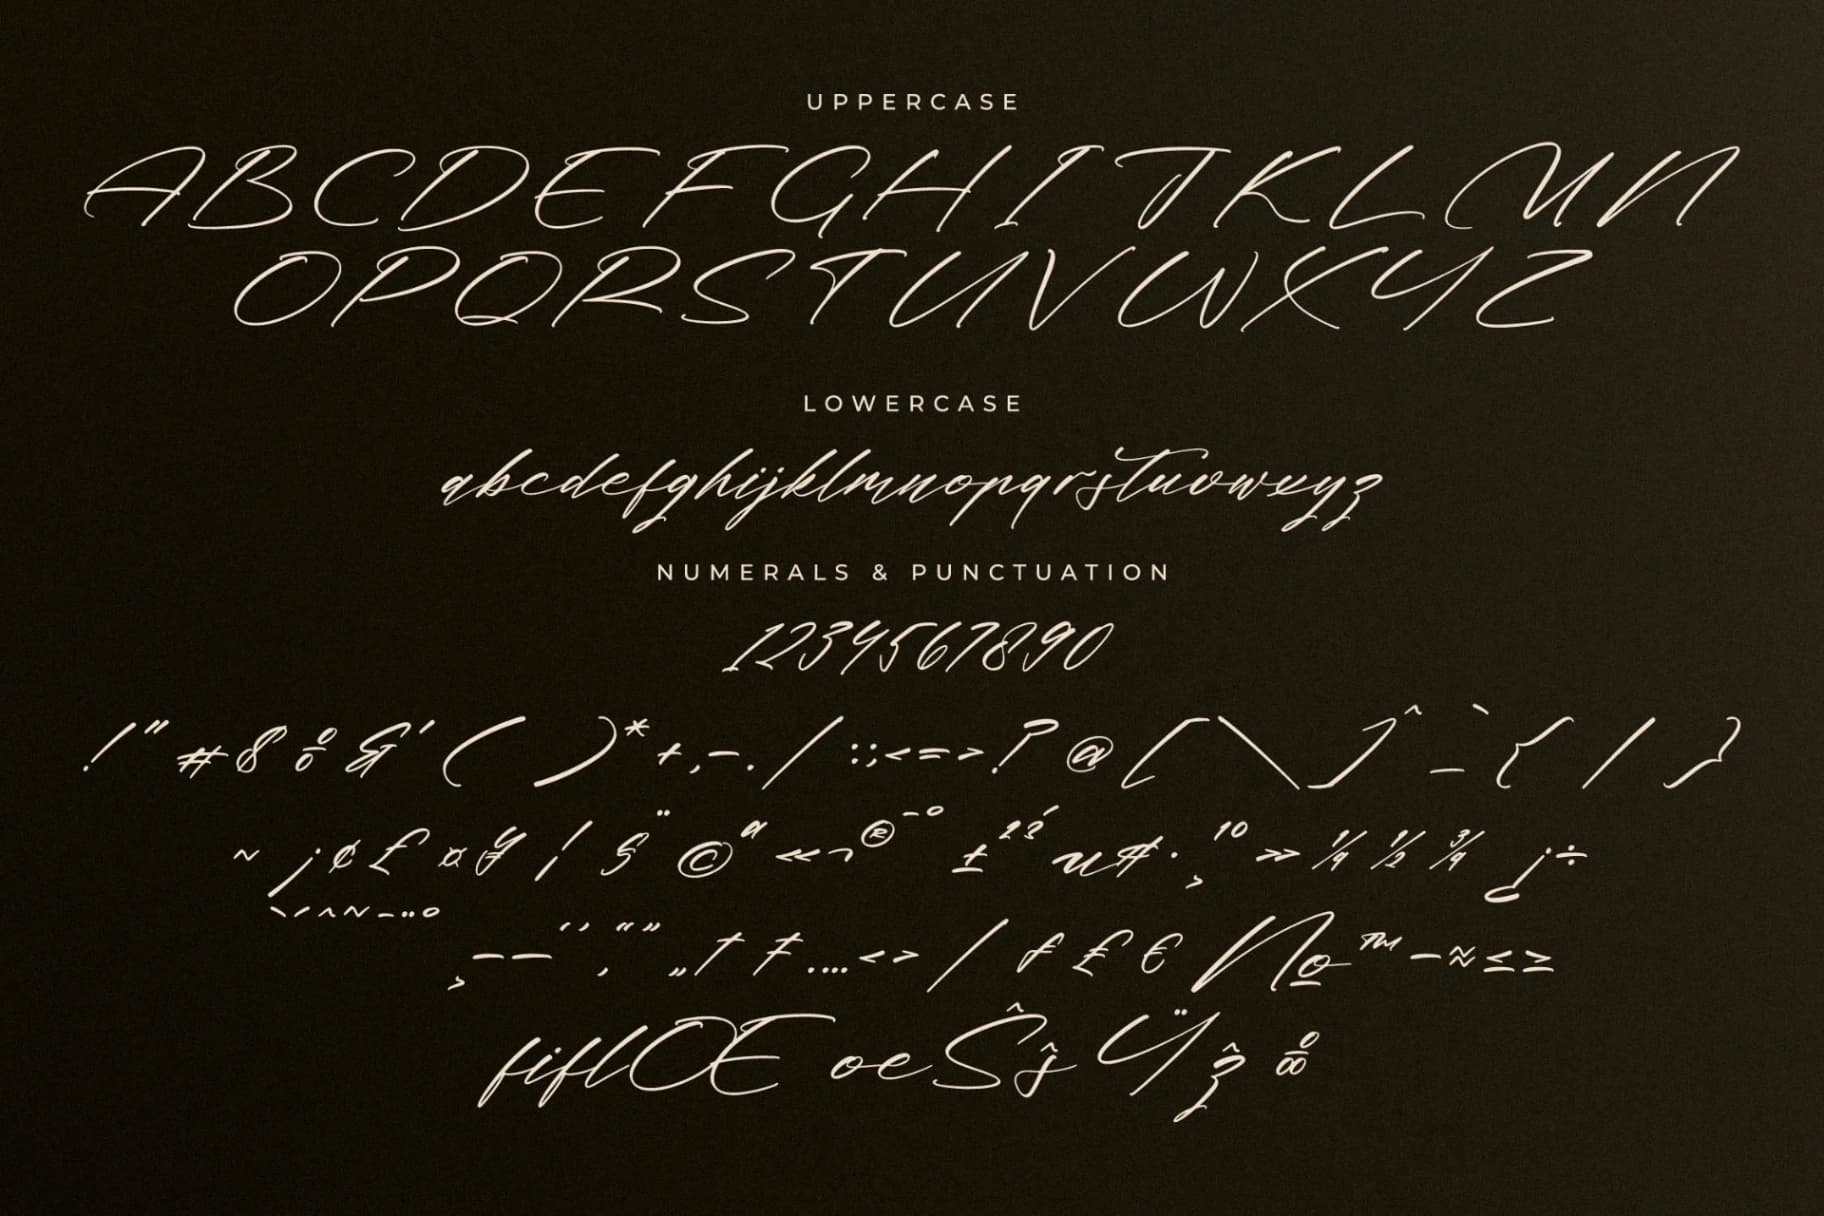 UPPERCASE
ABCDEFGHIJKLMN
OPQRSTUVWXYZ
LOWERCASE
abcdefghijklmnopqrstuvwxyz
NUMERALS & PUNCTUATION
1234567890
!"#$%&'()*+,-./:;<=>?@[\]^_`{|}
~¡¢£¤¥¦§¨©ª«¬®¯°±²³´µ¶·¸¹º»¼½¾¿÷
ˋˊˆ˜¯¨˚
¸–—‘’‚“”„†‡•…‹›⁄ƒ₤€№™−≈≤≥
fiflŒœŠšŸž‰